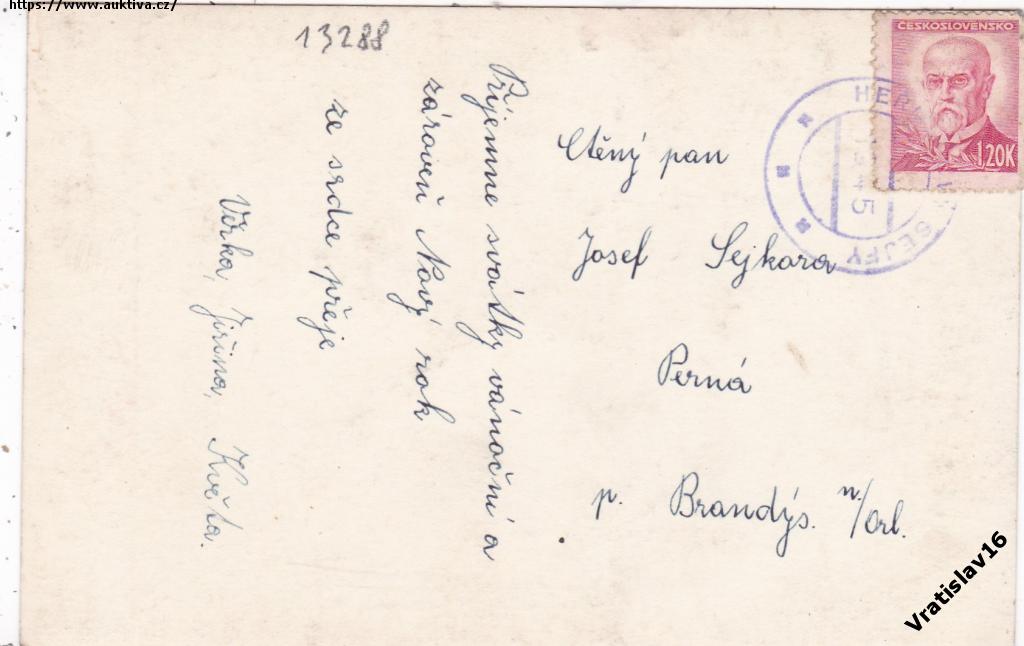 https://www.auktiva.cz/
13288
Příjemné svátky vánoční a
zároveň Nový rok
ze srdce přeje
Věrka, Jiřina, Květa.
ČESKOSLOVENSKO
1,20K
SEJFY
45
Ctěný pan
Josef Sejkora
Perná
p. Brandýs. n./Orl.
Vratislav16